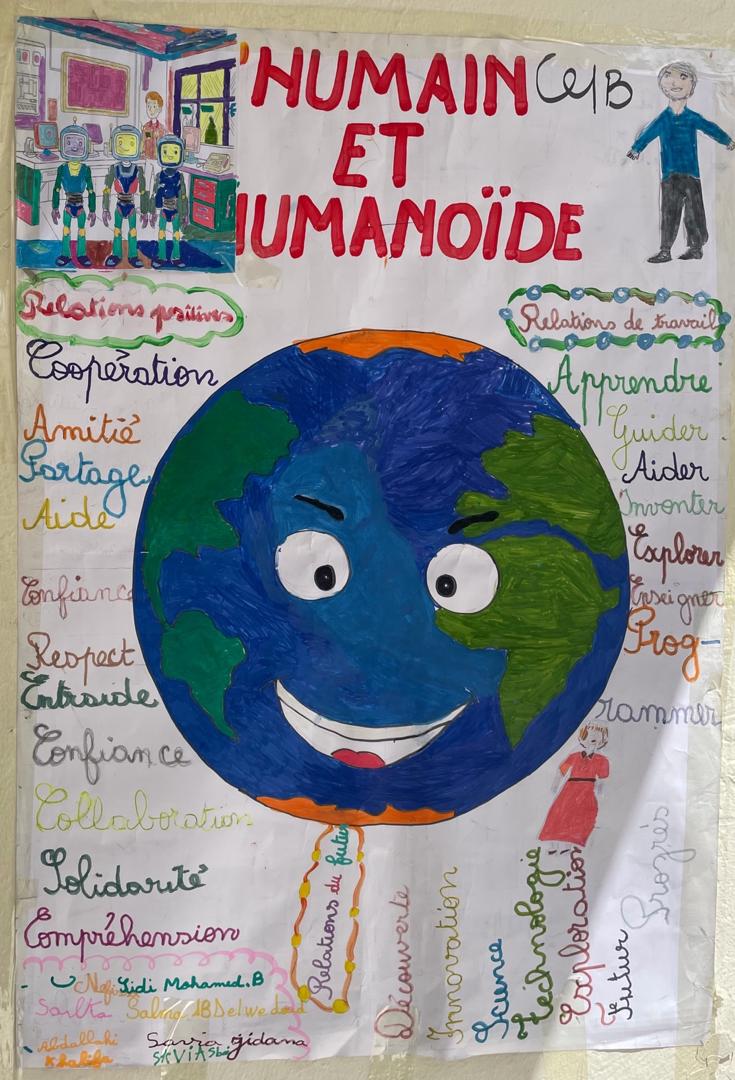 HUMAIN
ET
HUMANOÏDE
Relations positives
Coopération
Amitié
Partage
Aide
Confiance
Respect
Entraide
Confiance
Collaboration
Solidarité
Compréhension
Relations de travail
Apprendre
Guider
Aider
Inventer
Explorer
Enseigner
Prog-
rammer
Relations du futur
Découverte
Innovation
Science
Technologie
Exploration
Futur
Progrès
Sidi Mohamed.B
Salma
Abdallahi
Khalifa